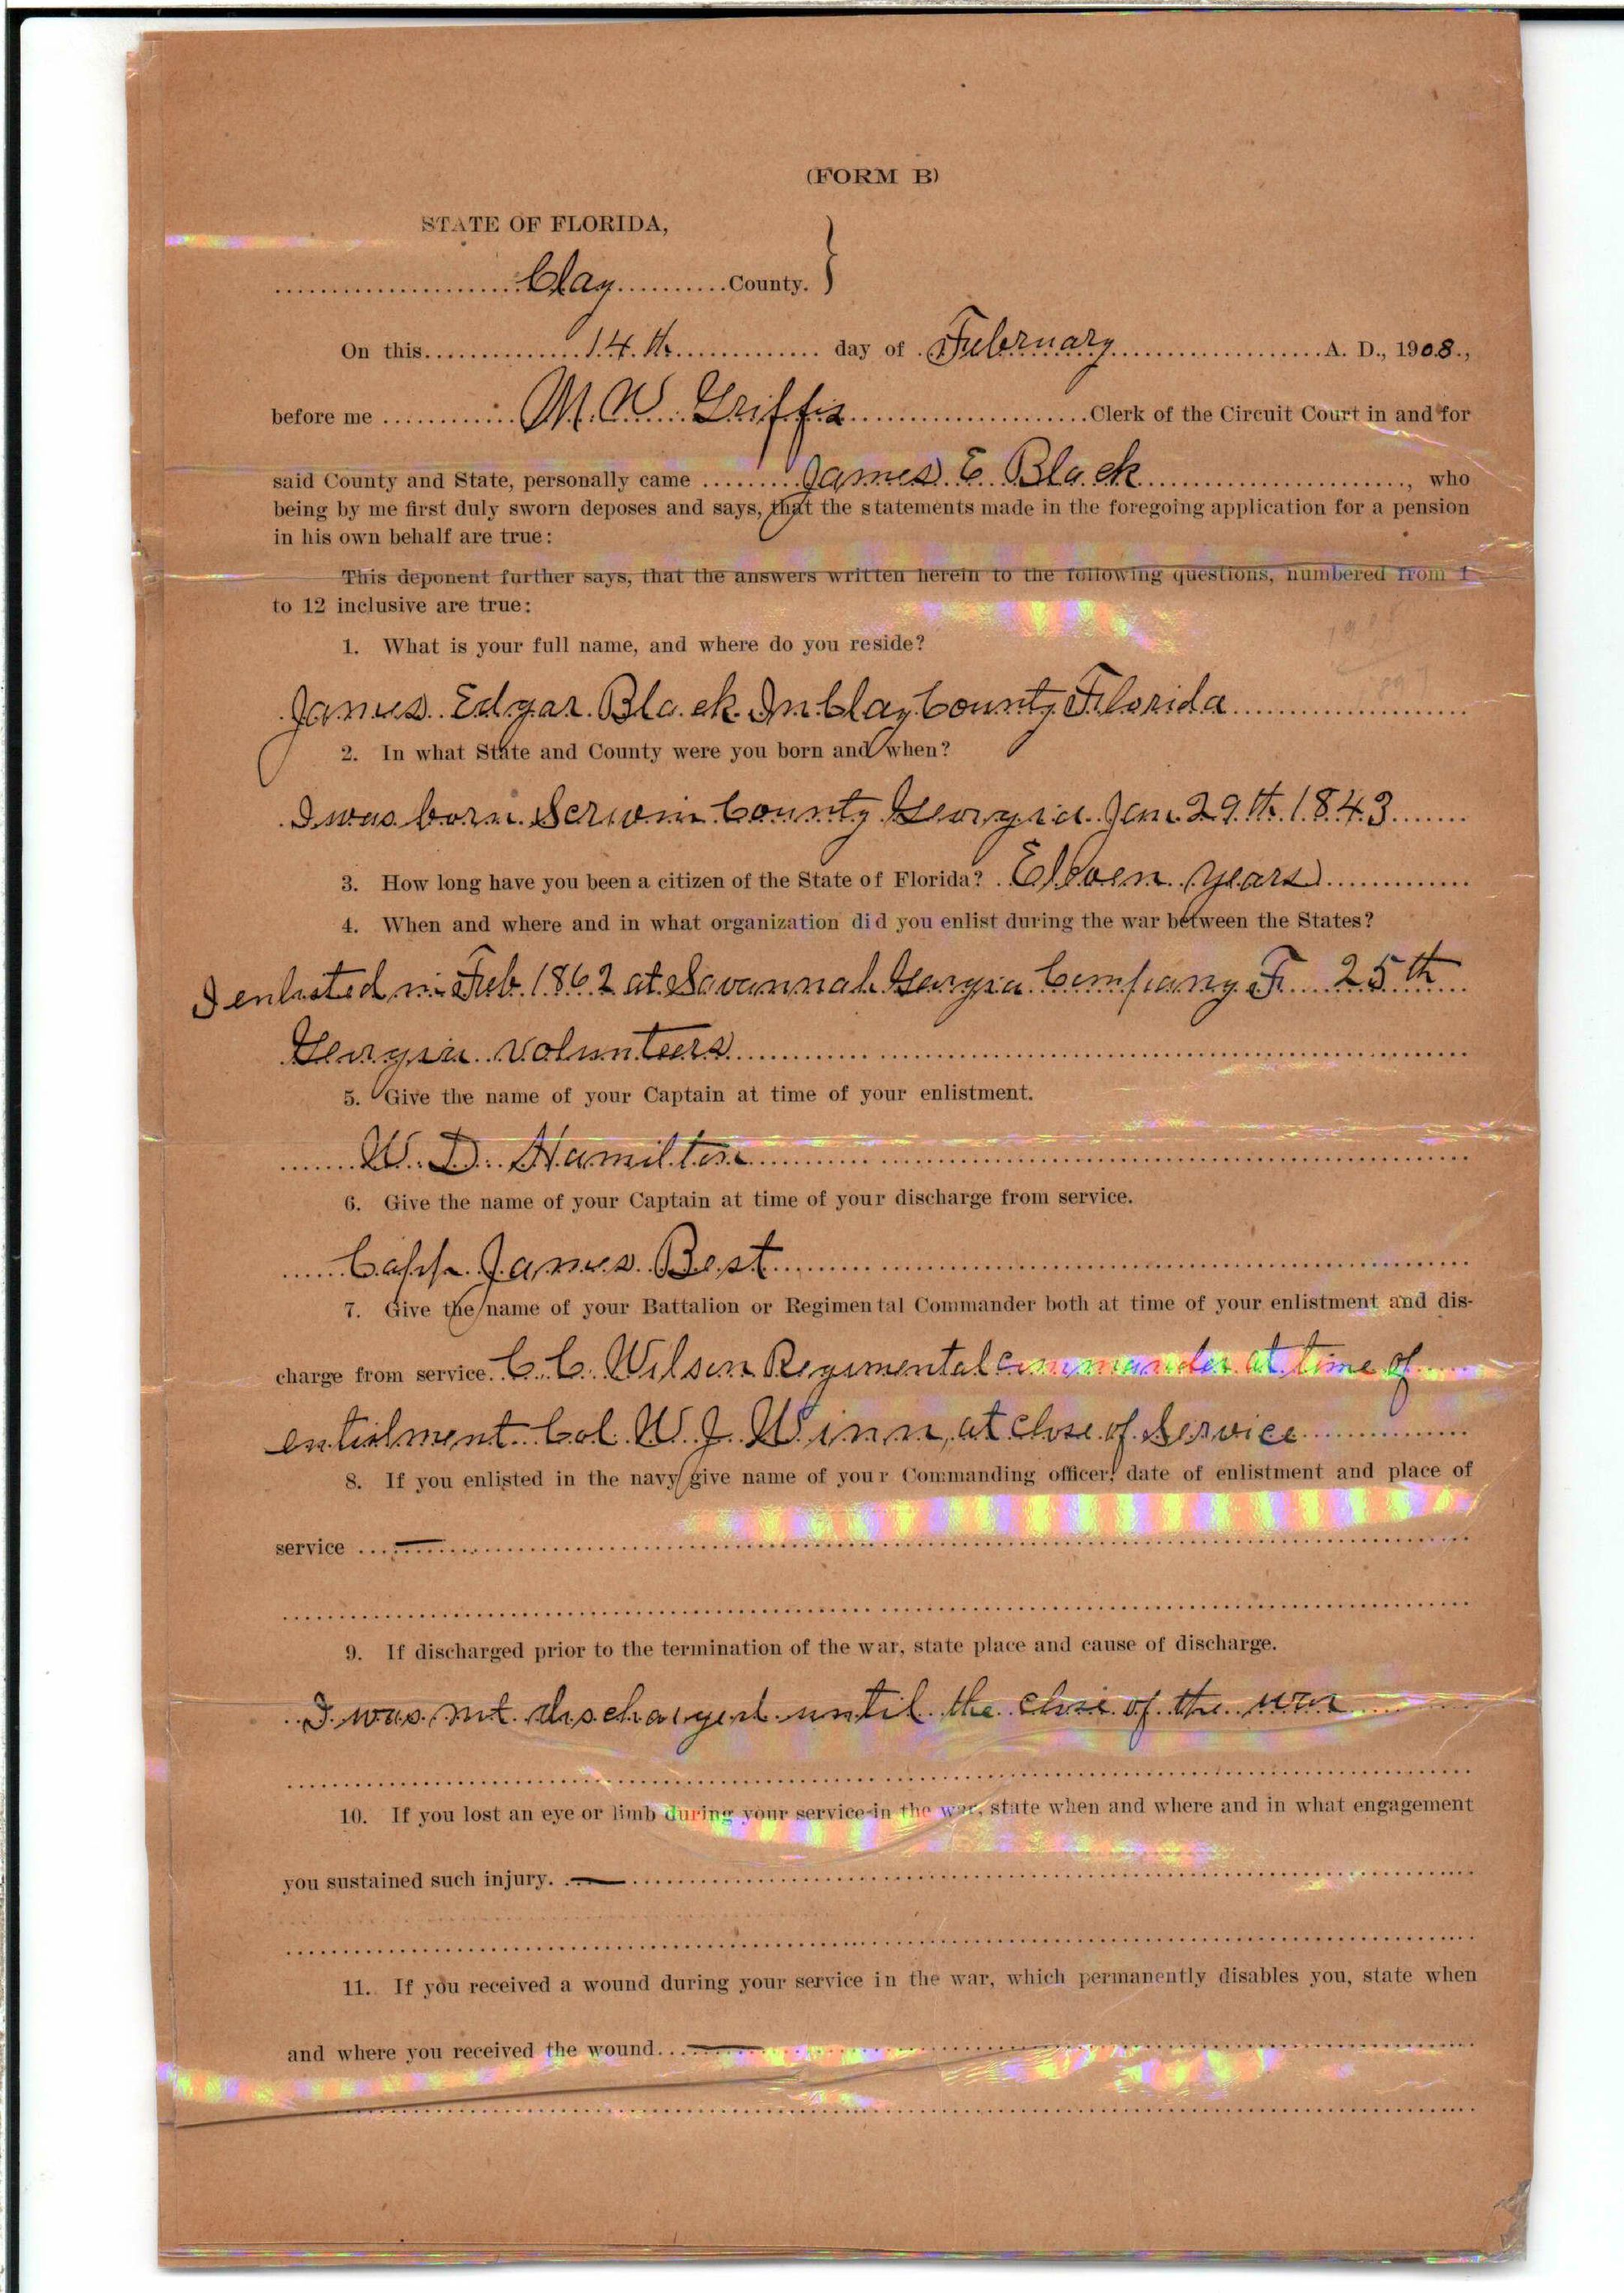 (FORM B)
STATE OF FLORIDA,
Clay County.
On this 14th day of February A. D., 1908.,
before me M. W. Griffis Clerk of the Circuit Court in and for
said County and State, personally came James E Black, who
being by me first duly sworn deposes and says, that the statements made in the foregoing application for a pension
in his own behalf are true:
This deponent further says, that the answers written herein to the following questions, numbered from 1
to 12 inclusive are true:
1. What is your full name, and where do you reside?
James Edgar Black In Clay County Florida
2. In what State and County were you born and when?
I was born Scrivin County Georgia Jan 29th 1843
3. How long have you been a citizen of the State of Florida? Eleven years
4. When and where and in what organization did you enlist during the war between the States?
I enlisted in Feb. 1862 at Savannah Georgia Company F 25th
Georgia volunteers
5. Give the name of your Captain at time of your enlistment.
W. D. Hamilton
6. Give the name of your Captain at time of your discharge from service.
Capp. James Best
7. Give the name of your Battalion or Regimental Commander both at time of your enlistment and dis-
charge from service. C. C. Wilson Regimental commander at time of
entislment Col. W. J. Winn, at close of Service
8. If you enlisted in the navy give name of your Commanding officer, date of enlistment and place of
service
9. If discharged prior to the termination of the war, state place and cause of discharge.
I was not discharged until the close of the war
10. If you lost an eye or limb during your service in the war, state when and where and in what engagement
you sustained such injury.
11. If you received a wound during your service in the war, which permanently disables you, state when
and where you received the wound